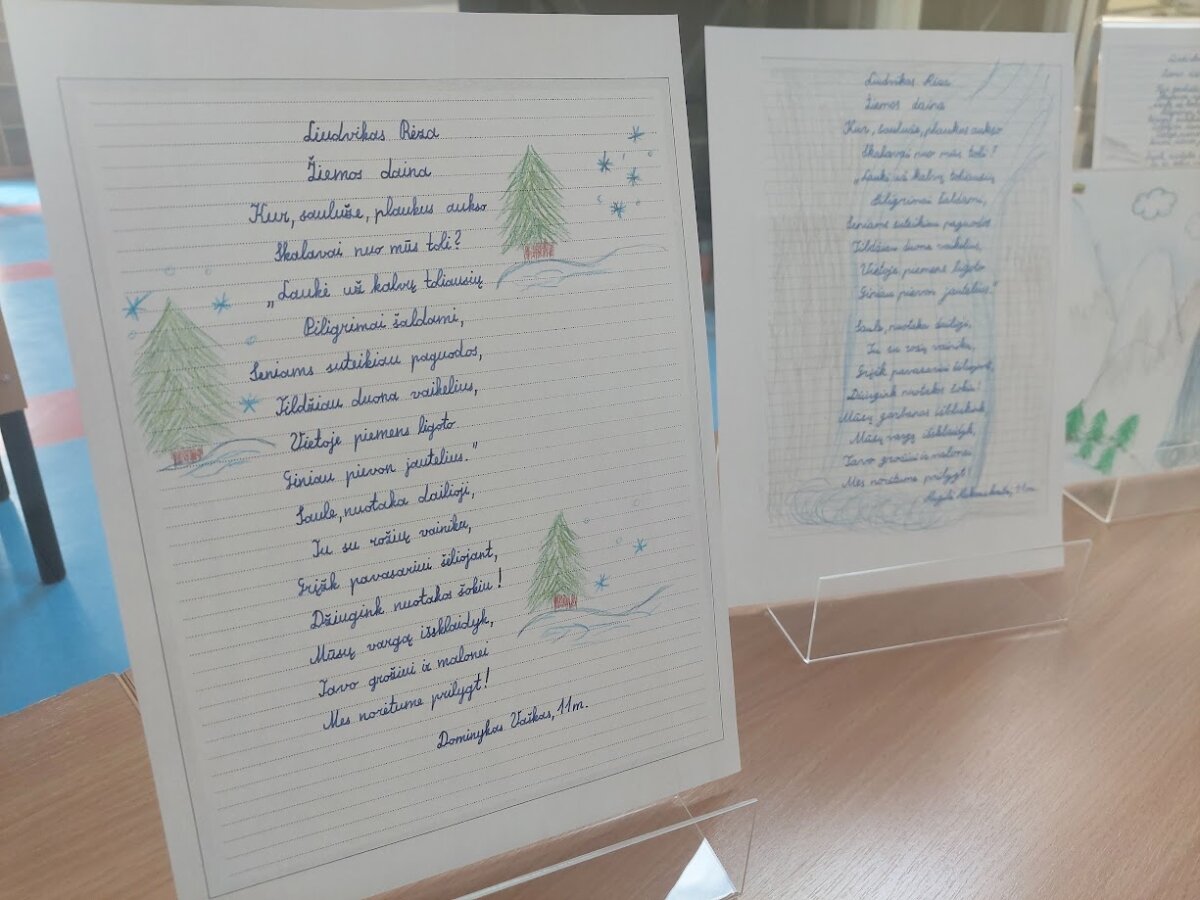 Liudvikas Rėza
Žiemos daina
Kur, sauluže, plaukus aukso
Skalavai nuo mūs toli?
„Laukė už kalvų toliausių
Piligrimai šaldami,
Seniams suteikiau paguodos,
Tildžiau duona vaikelius,
Vietoje piemens ligoto
Giniau pievon jautelius."
Saule, nuotaka dailioji,
Tu su rožių vainiku,
Grįžk pavasariui šėliojant,
Džiugink nuotakos šokiu!
Mūsų vargą išsklaidyk,
Tavo grožiui ir malonei
Mes norėtume prilygt!
Dominykas Vaškas, 11m.
Liudvikas Rėza
Žiemos daina
Kur, saulužė, plaukus aukso
Skalavai nuo mūs toli?
„Laukė už kalvų toliausių
Piligrimai šaldami,
Seniams suteikiau paguodos
Tildžiau duona vaikelius,
Vietoje piemens ligoto
Giniau pievon jautelius."
Saule, nuotaka dailioji,
Tu su rožių vainiku,
Grįžk pavasariui šėliojant,
Džiugink nuotakos šokiu!
Mūsų garbanas
Mūsų vargą išsklaidyk,
Tavo grožiui ir malonei
Mes norėtume prilygt!
11m.